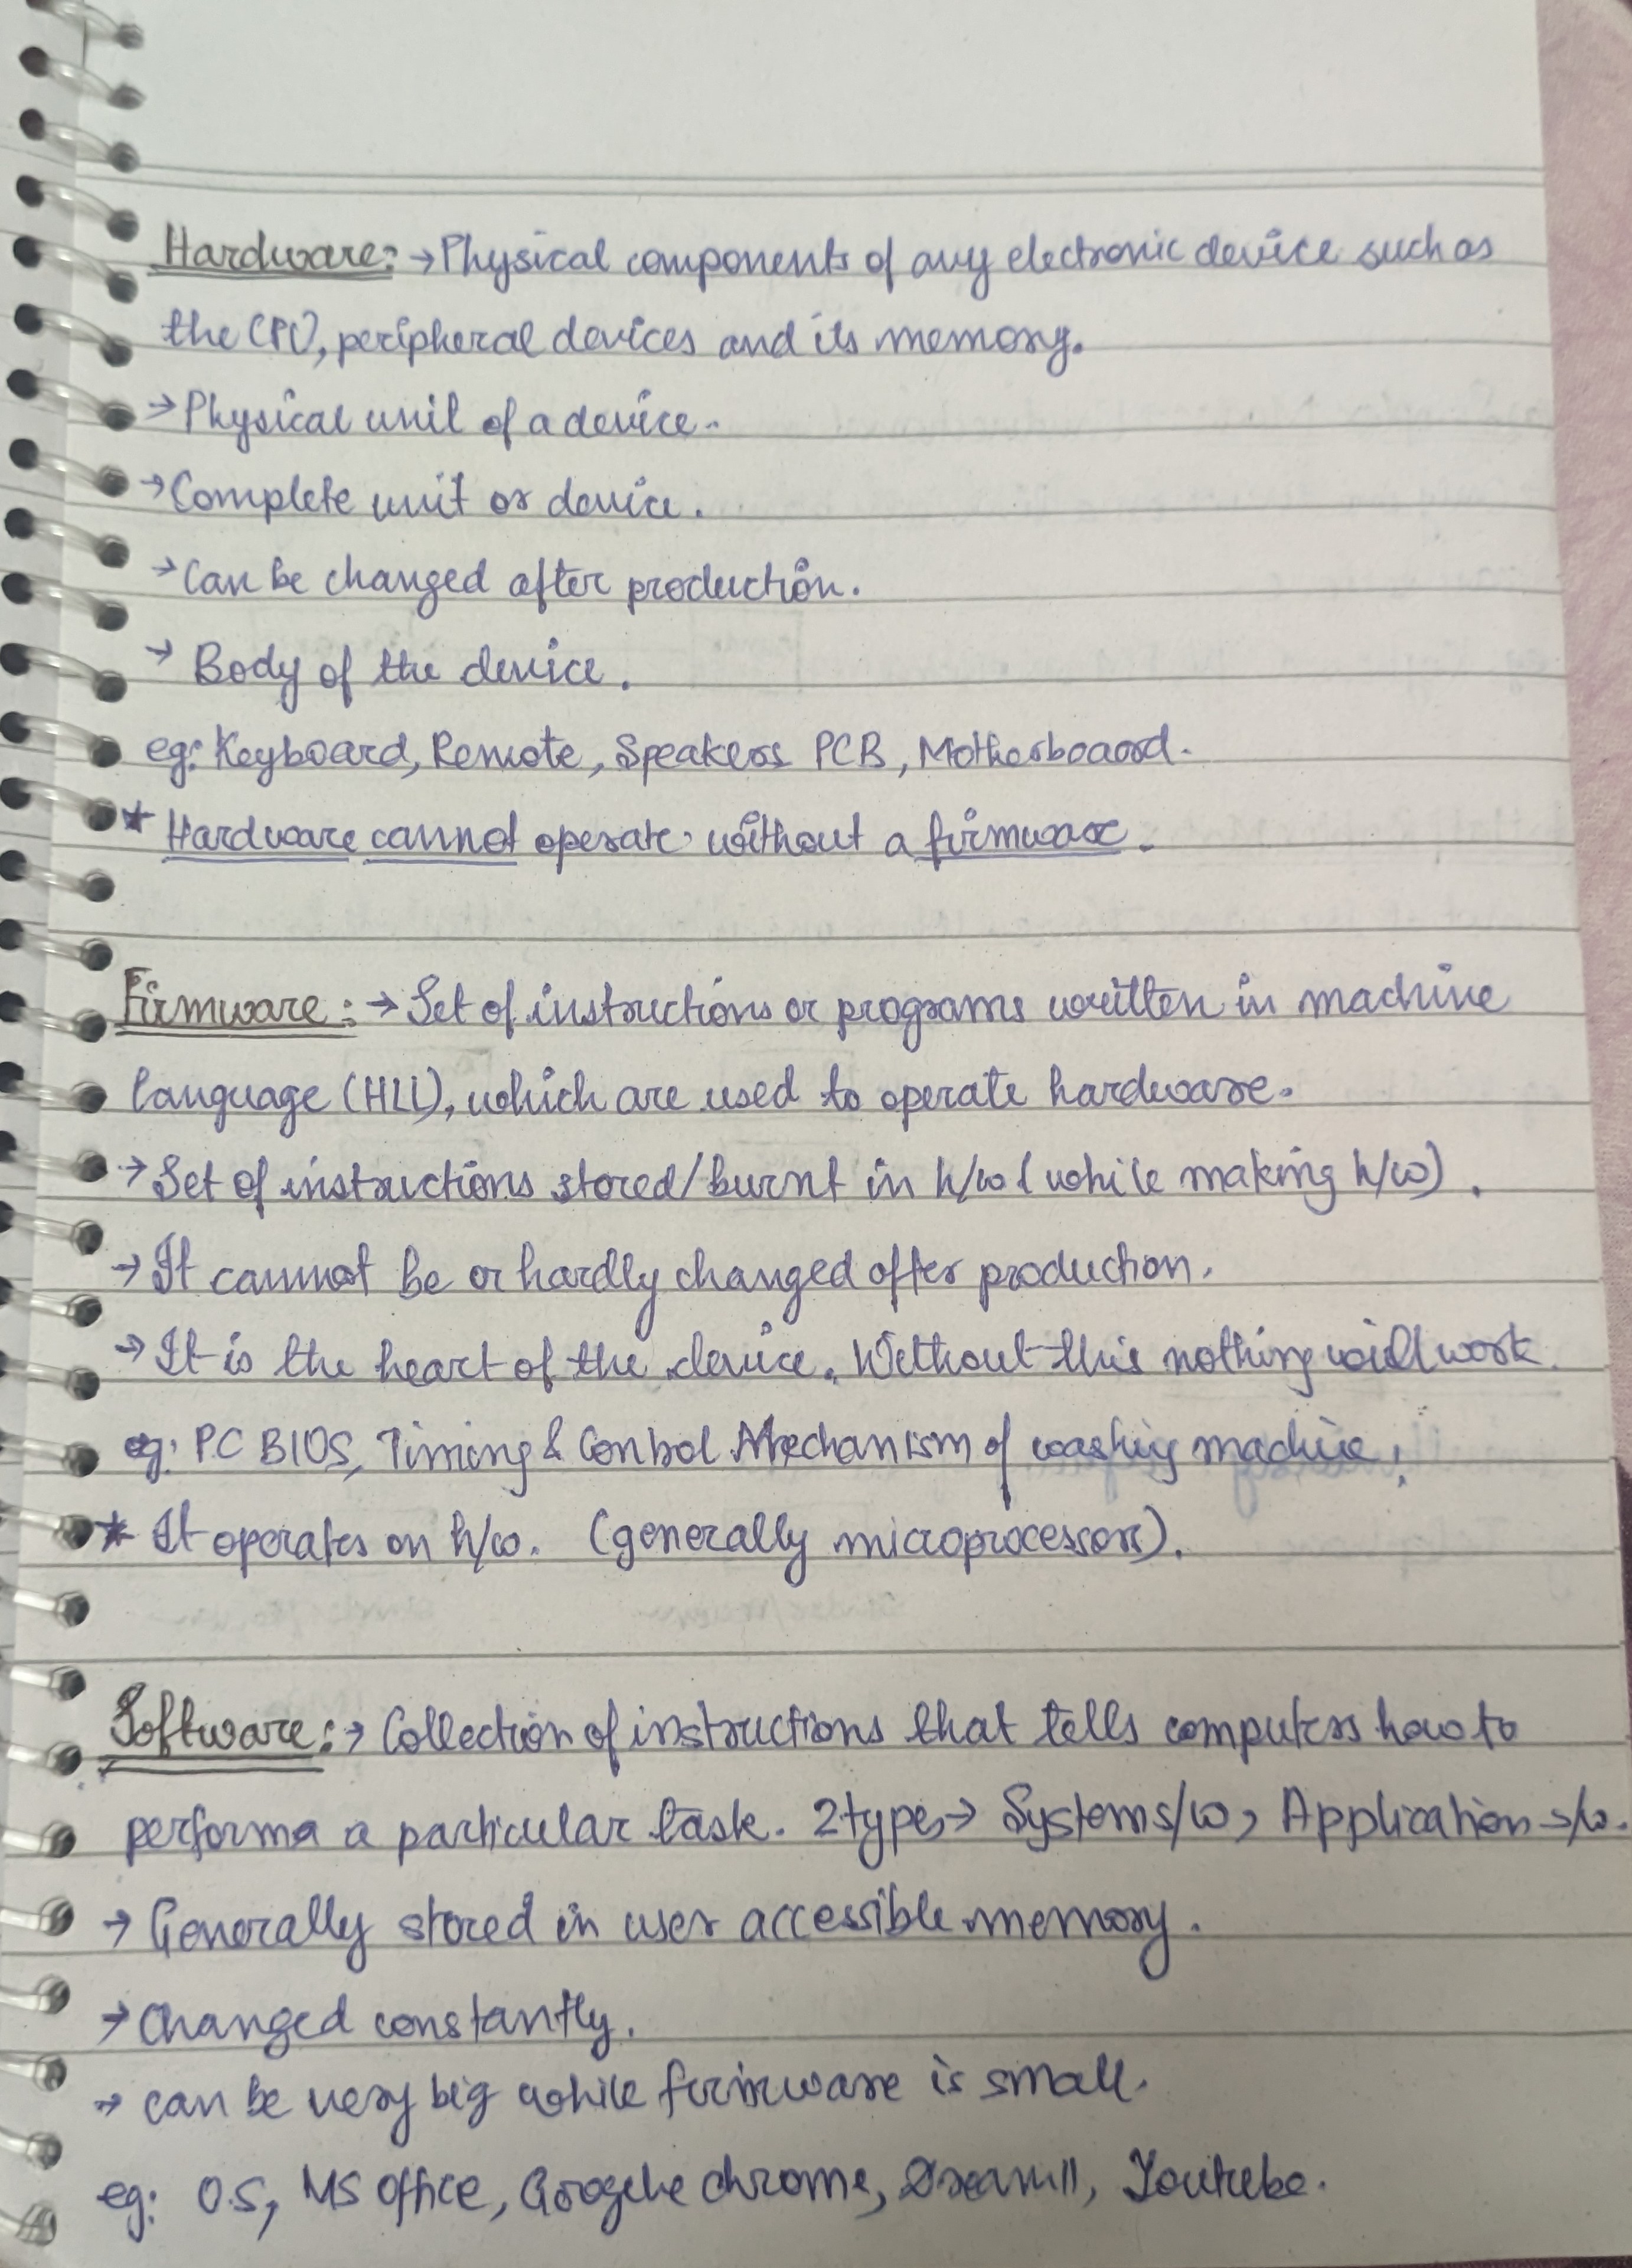 Hardware: → Physical components of any electronic device such as
the CPU, peripheral devices and its memory.
→ Physical unit of a device.
→ Complete unit or device.
→ Can be changed after production.
→ Body of the device.
eg: Keyboard, Remote, Speakers PCB, Motherboard.
* Hardware cannot operate without a firmware.
Firmware: → Set of instructions or programs written in machine
language (HLL), which are used to operate hardware.
→ Set of instructions stored/burnt in h/w (while making h/w).
→ It cannot be or hardly changed after production.
→ It is the heart of the device. Without this nothing will work.
eg: PC BIOS, Timing & Control Mechanism of washing machine.
* It operates on h/w. (generally microprocessors).
Software: → Collection of instructions that tells computers how to
performa a particular task. 2 types → System s/w, Application s/w.
→ Generally stored in user accessible memory.
→ Changed constantly.
→ can be very big while firmware is small.
eg: O.S, MS Office, Google chrome, Dream11, Youtube.